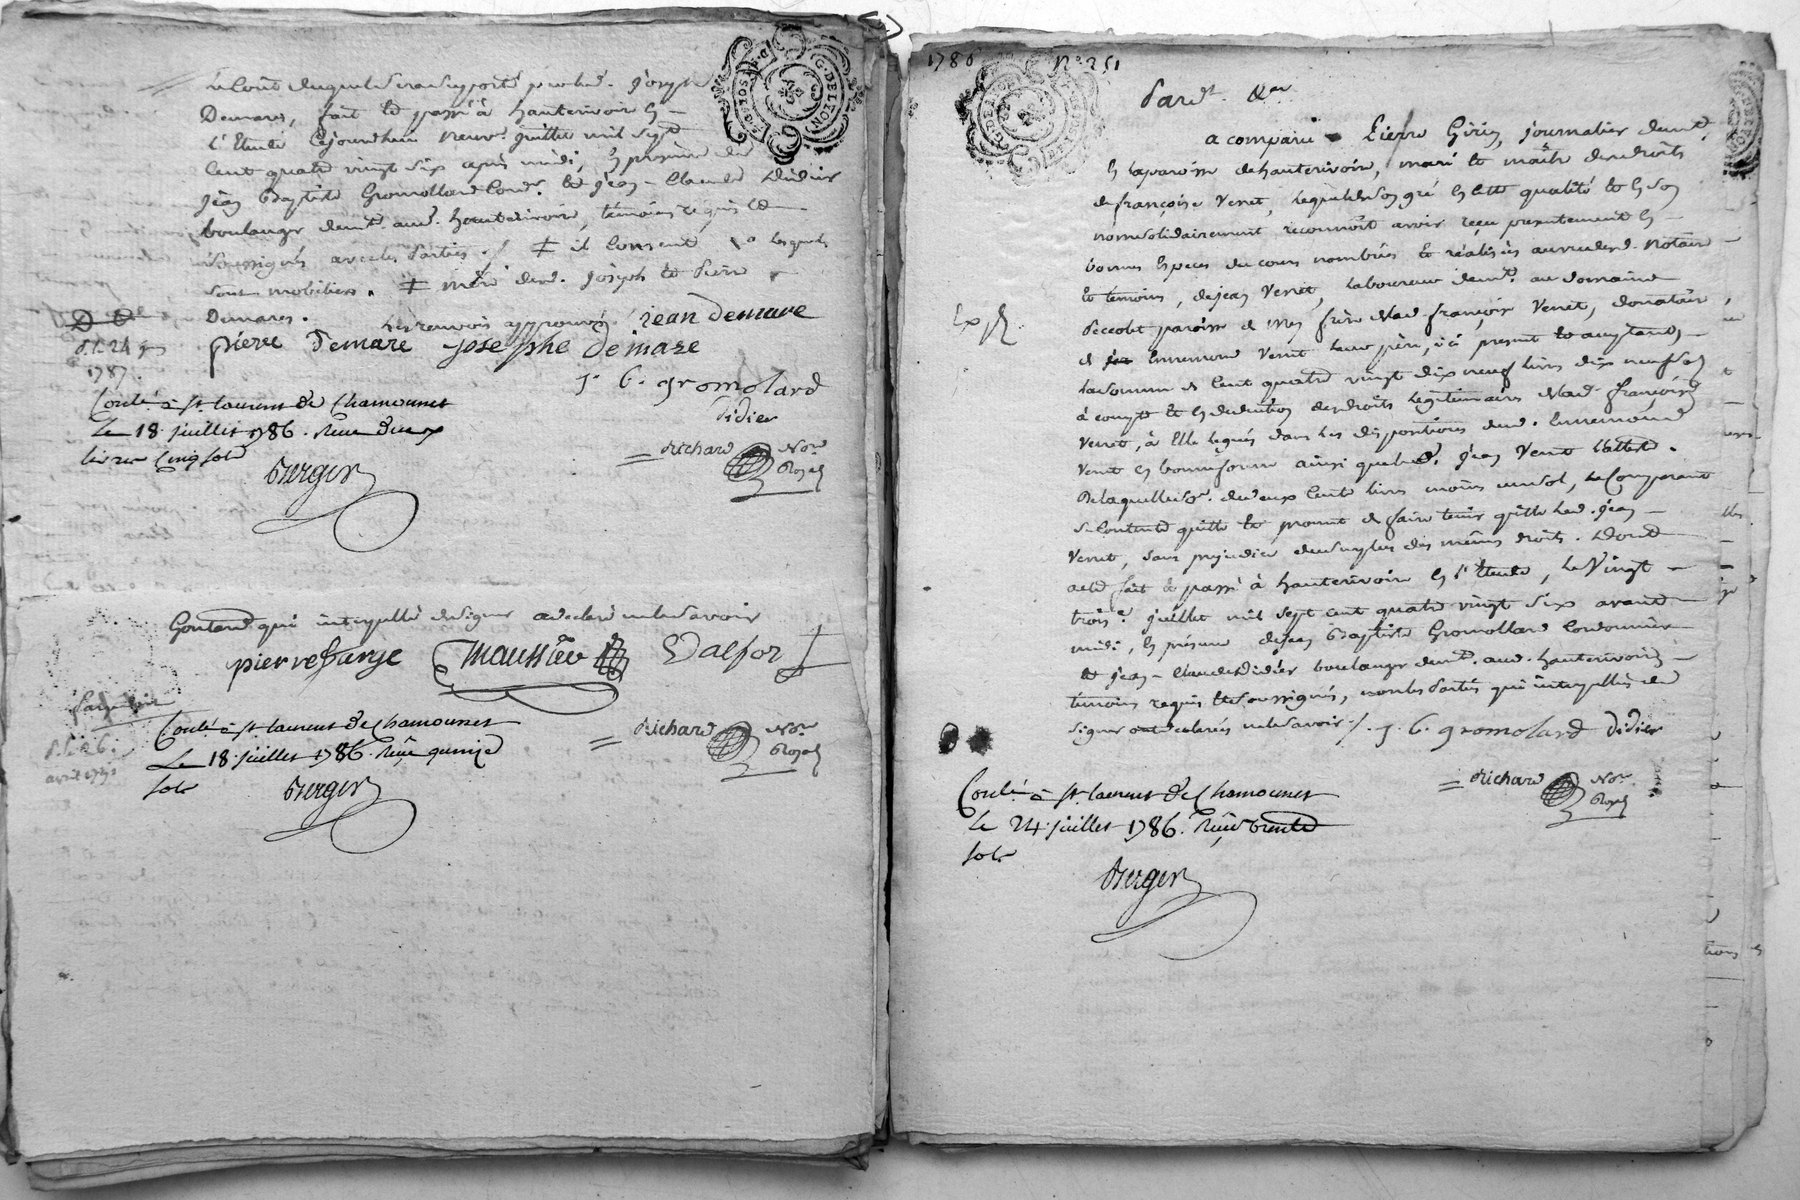 Demares, fait et passé à hauterivoire en
L'Etude Cejourdhuy neuf juillet mil sept
Cent quatre vingt six après midi, En présence de
jean Baptiste Gromollard Cord.r et jean-Claude Didier
boulanger dem.t aud. hauterivoire, temoins requis et
soussignés avec les Parties ./. ǂ il Consent lesquels
sont mobiliers. ǂ mère dud. joseph et Pierre
Demares. Les renvois approuvés jean demare
pierre Demare josephe demare
d. le 24
1787.
j. b. gromolard
didier
Conlé à St. laurent de Chamousset
Le 18. juillet 1786. Reçu deux
livres Cinq sols
Berger
Richard No.re
Royal
Goutard qui interpellé de signer a declaré ne le savoir
pierre farge maussieu Dalfor
Conlé à St. laurent de Chamousset
Le 18. juillet 1786. Reçu quinze
sols
Berger
Richard No.re
Royal
avril
1786 N.o 251
Pard.t &.a
a comparu Pierre Girin, journalier dem.t
En la paroisse de hauterivoire, mari et maître des droits
de françoise Venet, lequel de son gré En cette qualité et En son
nom solidairement reconnoît avoir reçu presentement En
bonnes Especes du cours nombrées et réalisées au vu dud. Notaire
et temoins, de jean Venet, Laboureur dem.t au domaine
paroisse de frère de lad. françoise Venet, donataire
de Ennemond Venet leur père, ici present et acceptant
la somme de Cent quatre vingt dix neuf livres dix neuf sols
à compte et En deduction des droits legitimaires de lad. françoise
Venet, à Elle legués dans les dispositions dud. Ennemond
Venet En bonne forme ainsi que led. jean Venet l'atteste.
De laquelle so.e de deux Cents livres moins un sol, le Comparant
se Contente quitte et promet de faire tenir quitte led. jean
Venet, sans prejudice du surplus des mêmes droits. Dont
acte fait et passé à hauterivoire En l'Etude, le Vingt
trois.e juillet mil sept cent quatre vingt six avant
midi, En présence de jean Baptiste Gromollard Cordonnier
et jean-Claude Didier boulanger dem.t aud. hauterivoire
temoins requis et soussignés, non les Parties qui interpellées de
signer ont declarés ne le savoir ./. j. b. gromolard didier
Richard No.re
Royal
Conlé à St. laurent de Chamousset
Le 24 juillet 1786. Reçu trente
sols
Berger